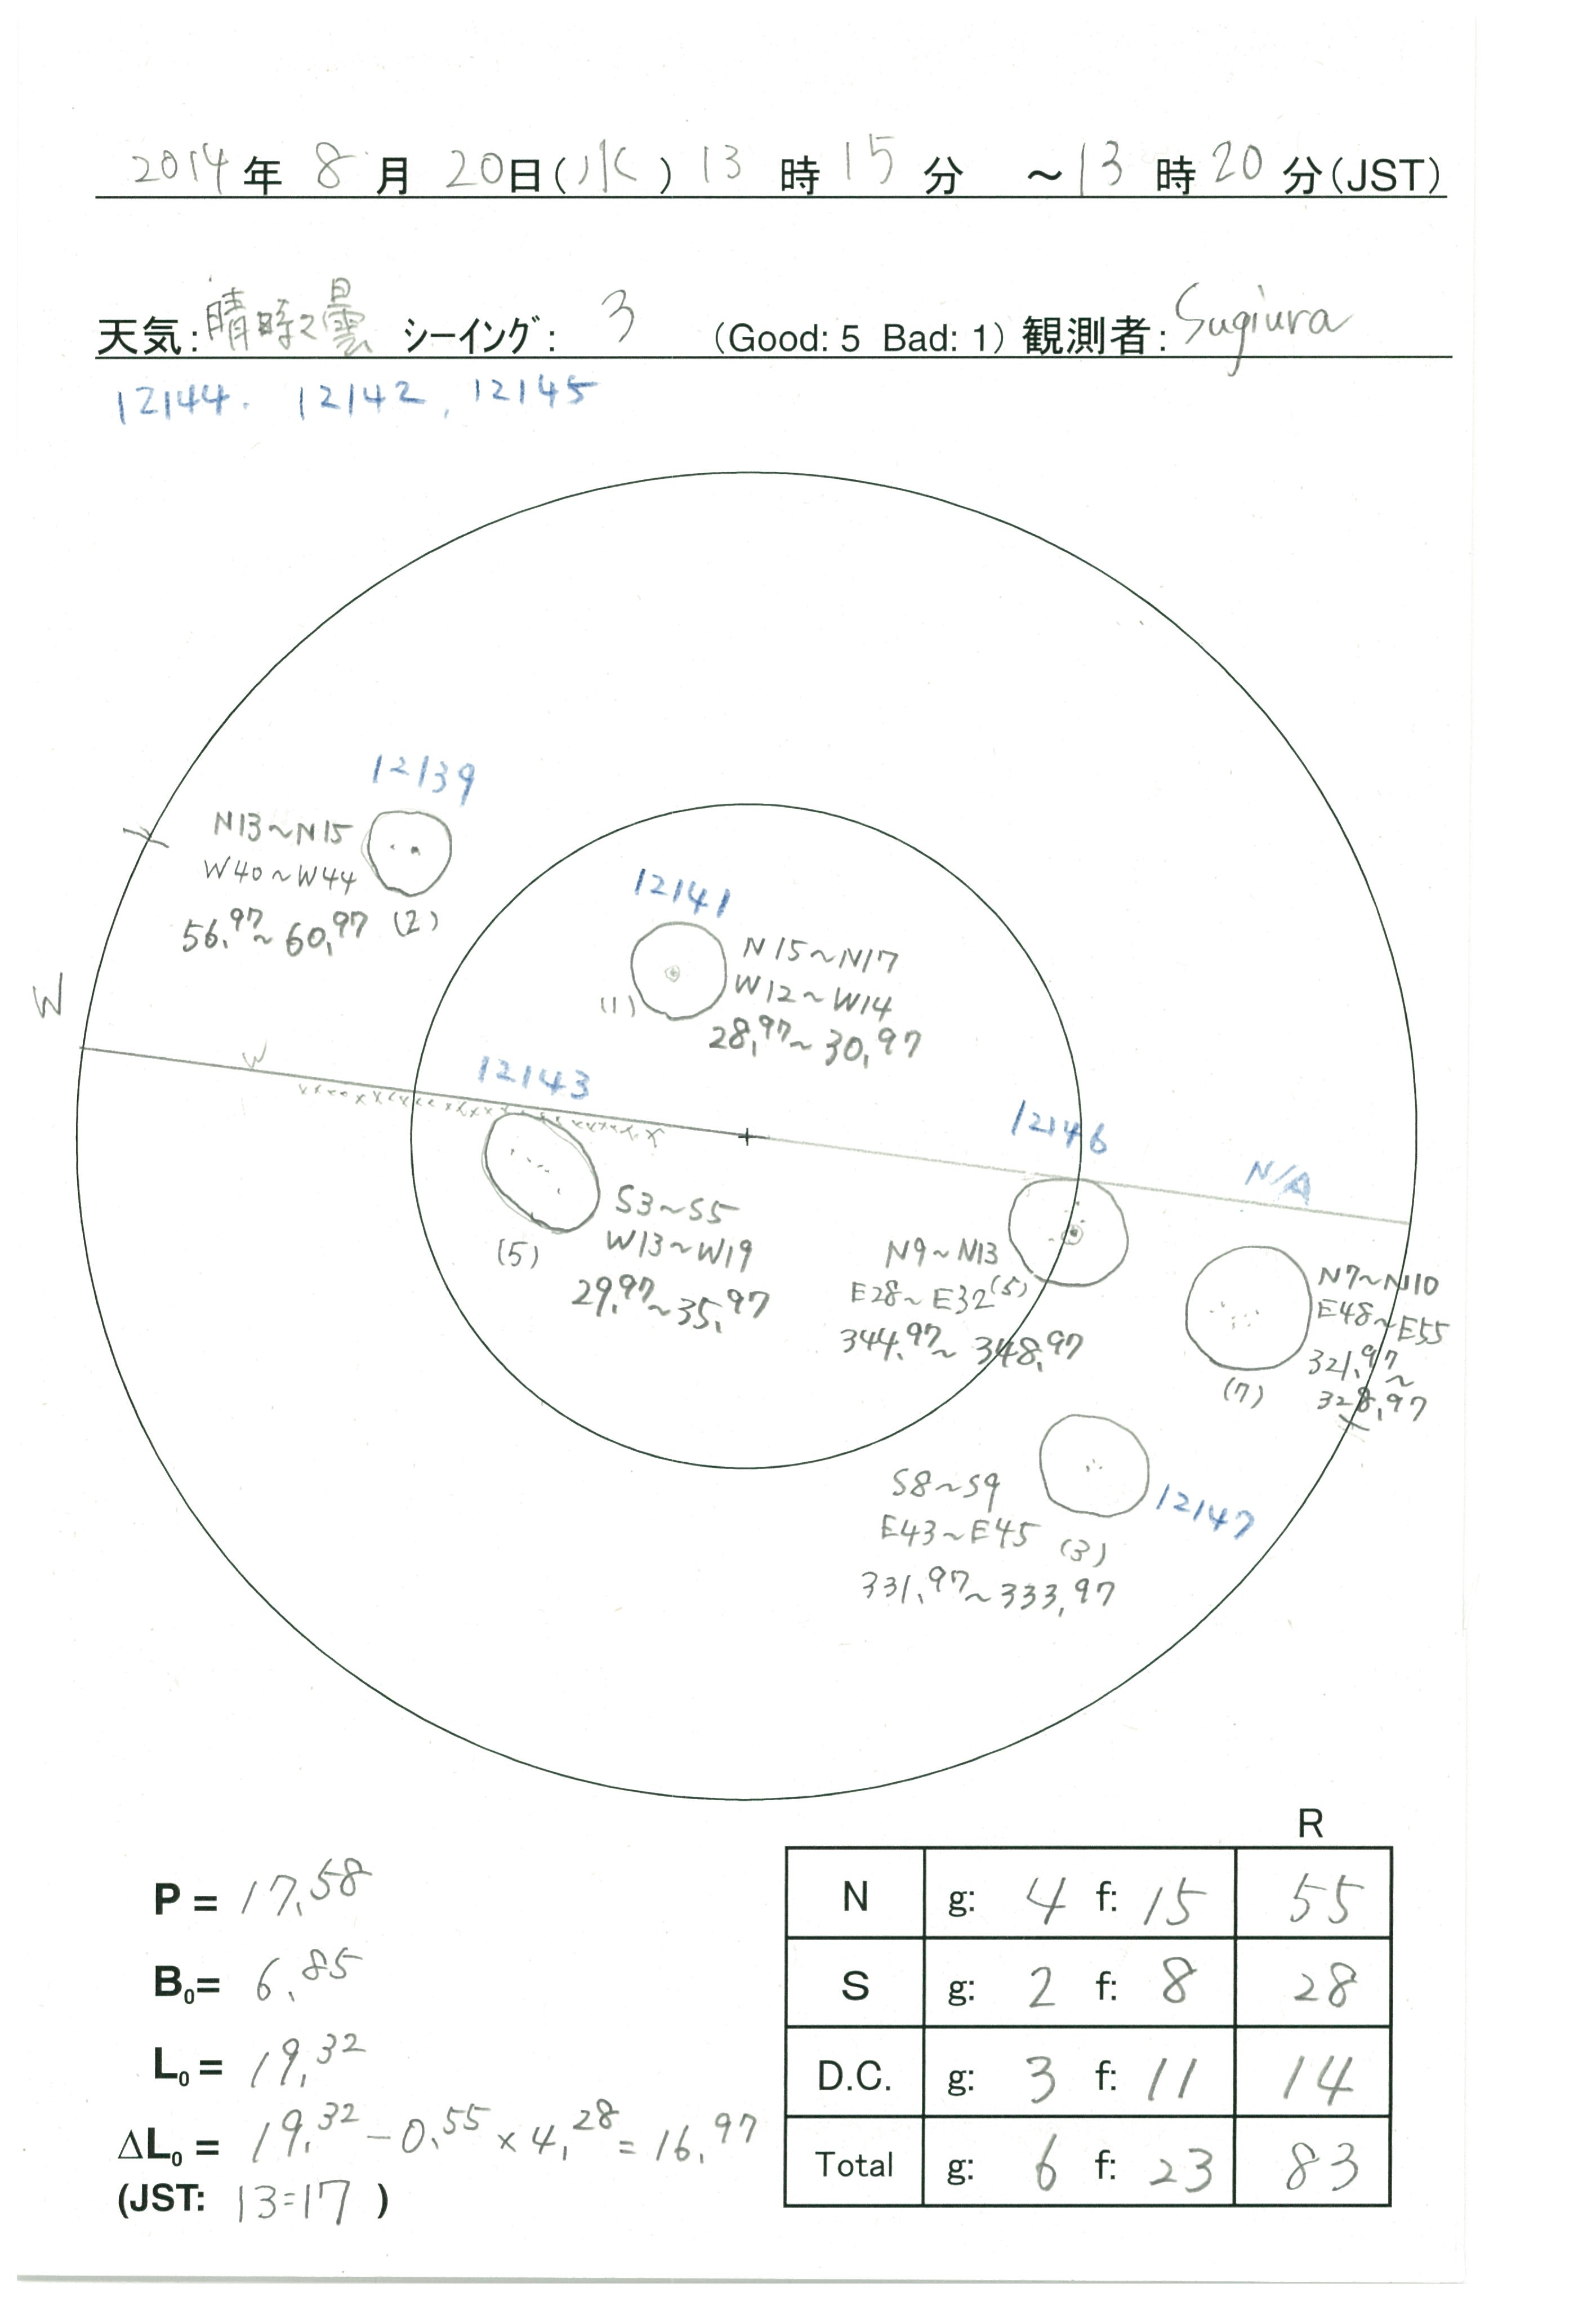 2014年 8月 20日(水) 13時 15分 ~13時20分(JST)
天気:晴時々曇 シーイング: 3 (Good: 5 Bad: 1) 観測者: Sugiura
12144. 12142, 12145
12139
N13~N15
W40~W44
56.97~60.97 (2)
12141
N15~N17
W12~W14
(1)
28.97~30.97
W
W
12143
S3~S5
W13~W19
(5)
29.97~35.97
12146
N9~N13
E28~E32(5)
344.97~348.97
N/A
N7~N10
E48~E55
321.97
~
328.97
(7)
S8~S9
E43~E45 (3)
331.97~333.97
12147
R
N g: 4 f: 15 55
S g: 2 f: 8 28
D.C. g: 3 f: 11 14
Total g: 6 f: 23 83
P = 17.58
B0= 6.85
L0 = 19.32
ΔL0 = 19.32-0.55×4.28=16.97
(JST: 13:17 )